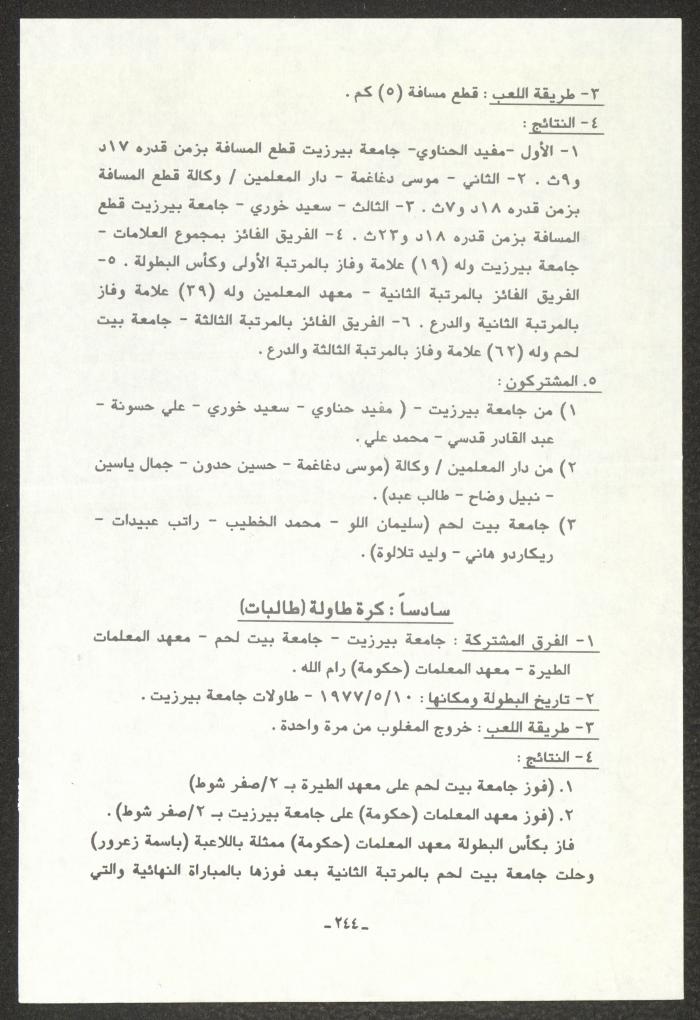 ٣- طريقة اللعب : قطع مسافة (٥) كم .
٤- النتائج :
١- الأول -مفيد الحناوي- جامعة بيرزيت قطع المسافة بزمن قدره ١٧د
و٩ث . ٢- الثاني - موسى دغاغمة - دار المعلمين / وكالة قطع المسافة
بزمن قدره ١٨د و٧ث . ٣- الثالث - سعيد خوري - جامعة بيرزيت قطع
المسافة بزمن قدره ١٨د و٢٣ث . ٤- الفريق الفائز بمجموع العلامات -
جامعة بيرزيت وله (١٩) علامة وفاز بالمرتبة الأولى وكأس البطولة . ٥-
الفريق الفائز بالمرتبة الثانية - معهد المعلمين وله (٣٩) علامة وفاز
بالمرتبة الثانية والدرع . ٦- الفريق الفائز بالمرتبة الثالثة - جامعة بيت
لحم وله (٦٢) علامة وفاز بالمرتبة الثالثة والدرع .
٥. المشتركون :
١) من جامعة بيرزيت - ( مفيد حناوي - سعيد خوري - علي حسونة -
عبد القادر قدسي - محمد علي .
٢) من دار المعلمين / وكالة (موسى دغاغمة - حسين حدون - جمال ياسين
- نبيل وضاح - طالب عبد) .
٣) جامعة بيت لحم (سليمان اللو - محمد الخطيب - راتب عبيدات -
ريكاردو هاني - وليد تلالوة) .
سادساً : كرة طاولة (طالبات)
١- الفرق المشتركة : جامعة بيرزيت - جامعة بيت لحم - معهد المعلمات
الطيرة - معهد المعلمات (حكومة) رام الله .
٢- تاريخ البطولة ومكانها : ١٩٧٧/٥/١٠ - طاولات جامعة بيرزيت .
٣- طريقة اللعب : خروج المغلوب من مرة واحدة .
٤- النتائج :
١. (فوز جامعة بيت لحم على معهد الطيرة بـ ٢/صفر شوط)
٢. (فوز معهد المعلمات (حكومة) على جامعة بيرزيت بـ ٢/صفر شوط) .
فاز بكأس البطولة معهد المعلمات (حكومة) ممثلة باللاعبة (باسمة زعرور)
وحلت جامعة بيت لحم بالمرتبة الثانية بعد فوزها بالمباراة النهائية والتي
ـ ٢٤٤ ـ